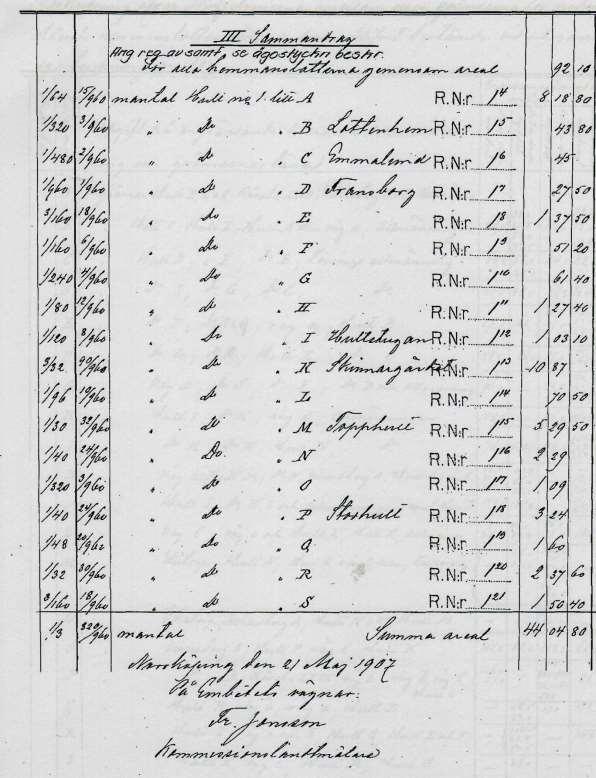 III Sammandrag
Ang reg. av samf. se ägostyckn beskr.
för alla hemmanslotterna gemensam areal 92 10
1/64 15/960 mantal Hult No 1 litt A R.N:r 1⁴ 8 18 80
1/320 3/960 " Do " B Lottenhem R.N:r 1⁵ 43 80
1/480 2/960 " Do " C Emmalund R.N:r 1⁶ 45
1/960 1/960 " Do " D Fransborg R.N:r 1⁷ 27 50
3/160 18/960 " Do " E R.N:r 1⁸ 1 37 50
1/160 6/960 " Do " F R.N:r 1⁹ 51 20
1/240 4/960 " Do " G R.N:r 1¹⁰ 61 40
1/80 12/960 " Do " H R.N:r 1¹¹ 1 27 40
1/120 8/960 " Do " I Hultstugan R.N:r 1¹² 1 03 10
3/32 90/960 " Do " K Skinnargärdet R.N:r 1¹³ 10 87
1/96 10/960 " Do " L R.N:r 1¹⁴ 70 50
1/30 32/960 " Do " M Topphult R.N:r 1¹⁵ 5 29 50
1/40 24/960 " Do " N R.N:r 1¹⁶ 2 29
1/320 3/960 " Do " O R.N:r 1¹⁷ 1 09
1/40 24/960 " Do " P Storhult R.N:r 1¹⁸ 3 24
1/48 20/960 " Do " Q R.N:r 1¹⁹ 1 60
1/32 30/960 " Do " R R.N:r 1²⁰ 2 37 60
3/160 18/960 " Do " S R.N:r 1²¹ 1 50 40
1/3 320/960 mantal Summa areal 44 04 80
Norrköping den 21 Maj 1907
På Embetets vägnar:
Fr. Jonsson
Kommissionslandtmätare